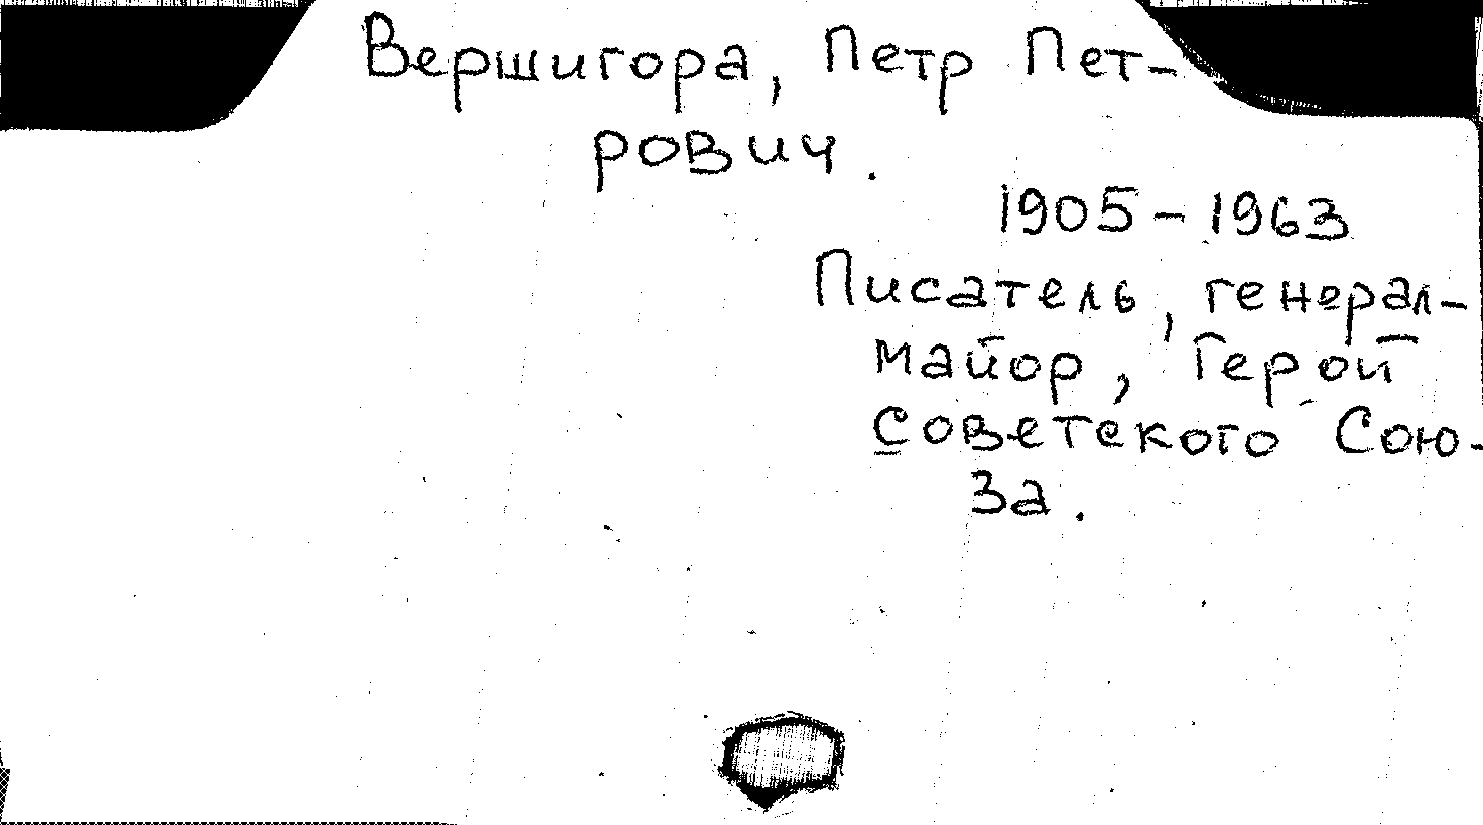 Вершигора, Петр Пет-
рович.
1905-1963
Писатель, генерал-
майор, Герой
Советского Сою-
за.